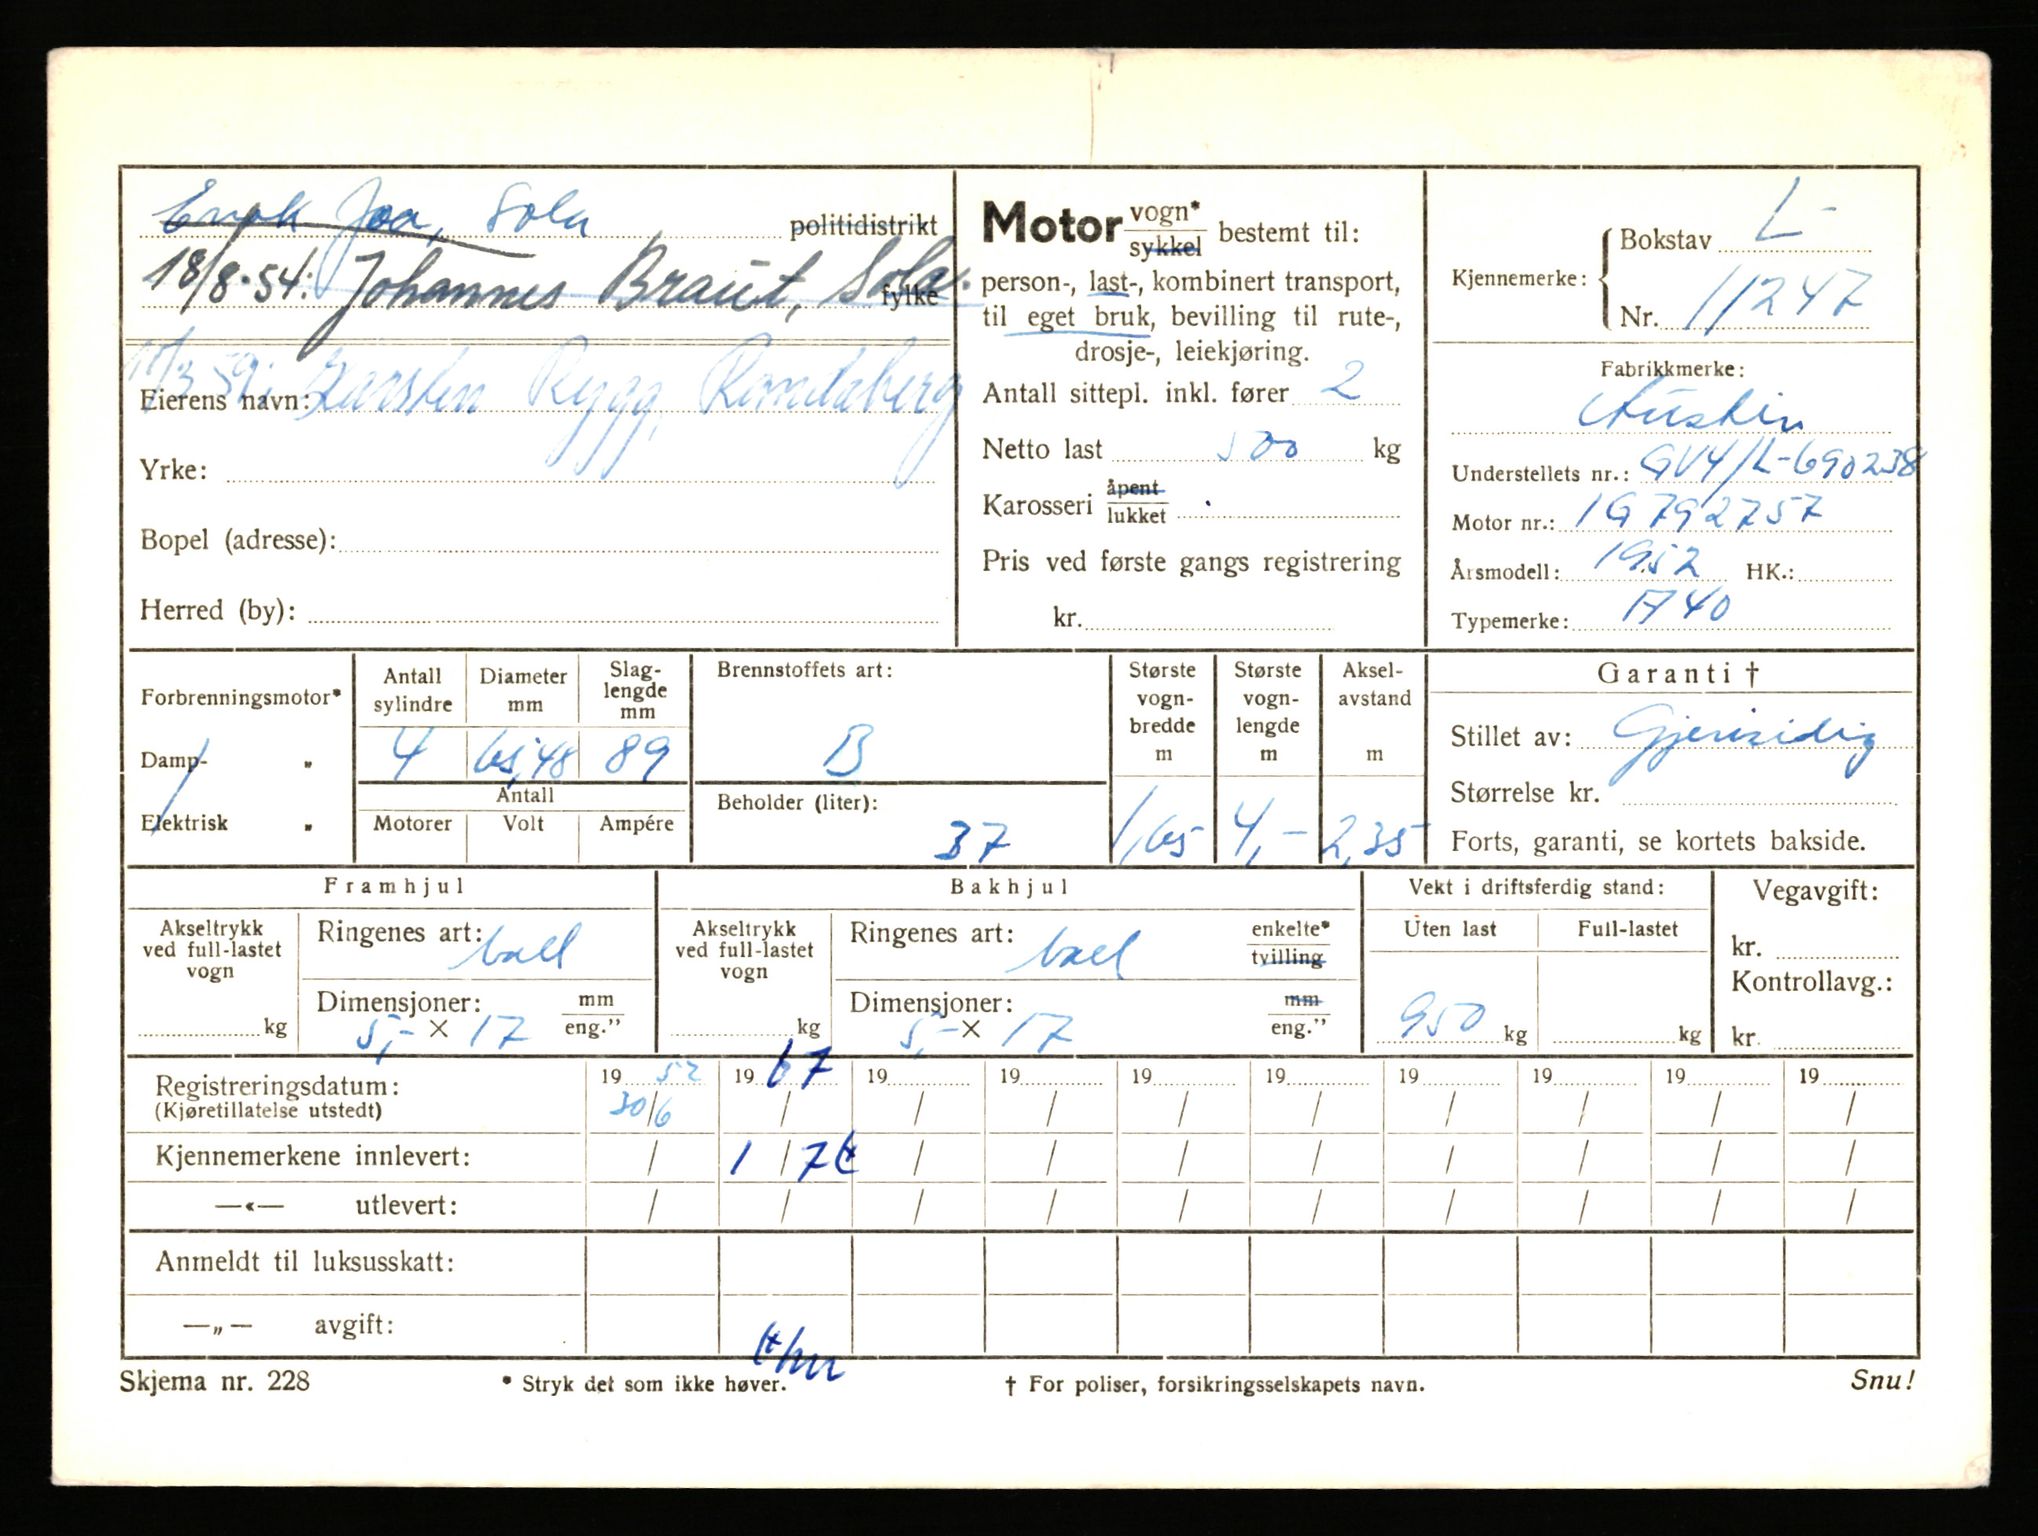 Enok Joa, Sola politidistrikt
18/8-54: Johannes Braut, Sola. fylke
11/3 59: Karsten Rygg, Randaberg
Eierens navn:
Yrke:
Bopel (adresse):
Herred (by):
Motor vogn* / sykkel bestemt til:
person-, last-, kombinert transport,
til eget bruk, bevilling til rute-,
drosje-, leiekjøring.
Antall sittepl. inkl. fører 2
Netto last 500 kg
Karosseri åpent / lukket
Pris ved første gangs registrering
kr.
Kjennemerke: Bokstav L-
Nr. 11247
Fabrikkmerke:
Austin
Understellets nr.: GV4/L-690238
Motor nr.: 1G792757
Årsmodell: 1952 HK.:
Typemerke: A40
Forbrenningsmotor*
Damp- „
Elektrisk „
Antall sylindre 4
Diameter mm 65,48
Slag-lengde mm 89
Antall
Motorer Volt Ampére
Brennstoffets art:
B
Beholder (liter):
37
Største vogn-bredde m 1,65
Største vogn-lengde m 4,-
Aksel-avstand m 2,35
Garanti †
Stillet av: Gjensidig
Størrelse kr.
Forts, garanti, se kortets bakside.
Framhjul
Akseltrykk ved full-lastet vogn kg
Ringenes art: ball
Dimensjoner: mm / eng."
5,- × 17
Bakhjul
Akseltrykk ved full-lastet vogn kg
Ringenes art: ball enkelte* / tvilling
Dimensjoner: mm / eng."
5,- × 17
Vekt i driftsferdig stand:
Uten last Full-lastet
950 kg kg
Vegavgift:
kr.
Kontrollavg.:
kr.
Registreringsdatum: 19 52 19 67 19 19 19 19 19 19 19 19
(Kjøretillatelse utstedt) 30/6 / / / / / / / / /
Kjennemerkene innlevert: / 1/7 / / / / / / / /
—«— utlevert: / / / / / / / / / /
Anmeldt til luksusskatt:
—„— avgift:
Skjema nr. 228 * Stryk det som ikke høver. † For poliser, forsikringsselskapets navn. Snu!